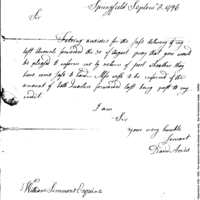 Springfield Septem 8. 1796
Sir
Feeling anxious for the safe delivery of my
last Accounts forwarded the 30 of August pray that you would
be pleased to inform me by return of post whether they
have come safe to hand. Also wish to be informed of the
amount of both Invoices forwarded last being past to my
credit.
I am
Sir
your very humble
Servant
David Ames
William Simmons Esquire